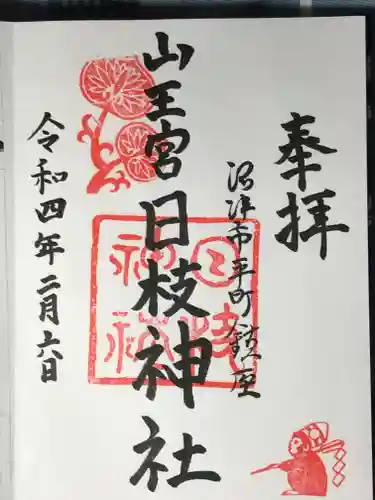 奉拝
沼津市平町鎮座
山王宮
日枝神社
令和四年二月六日